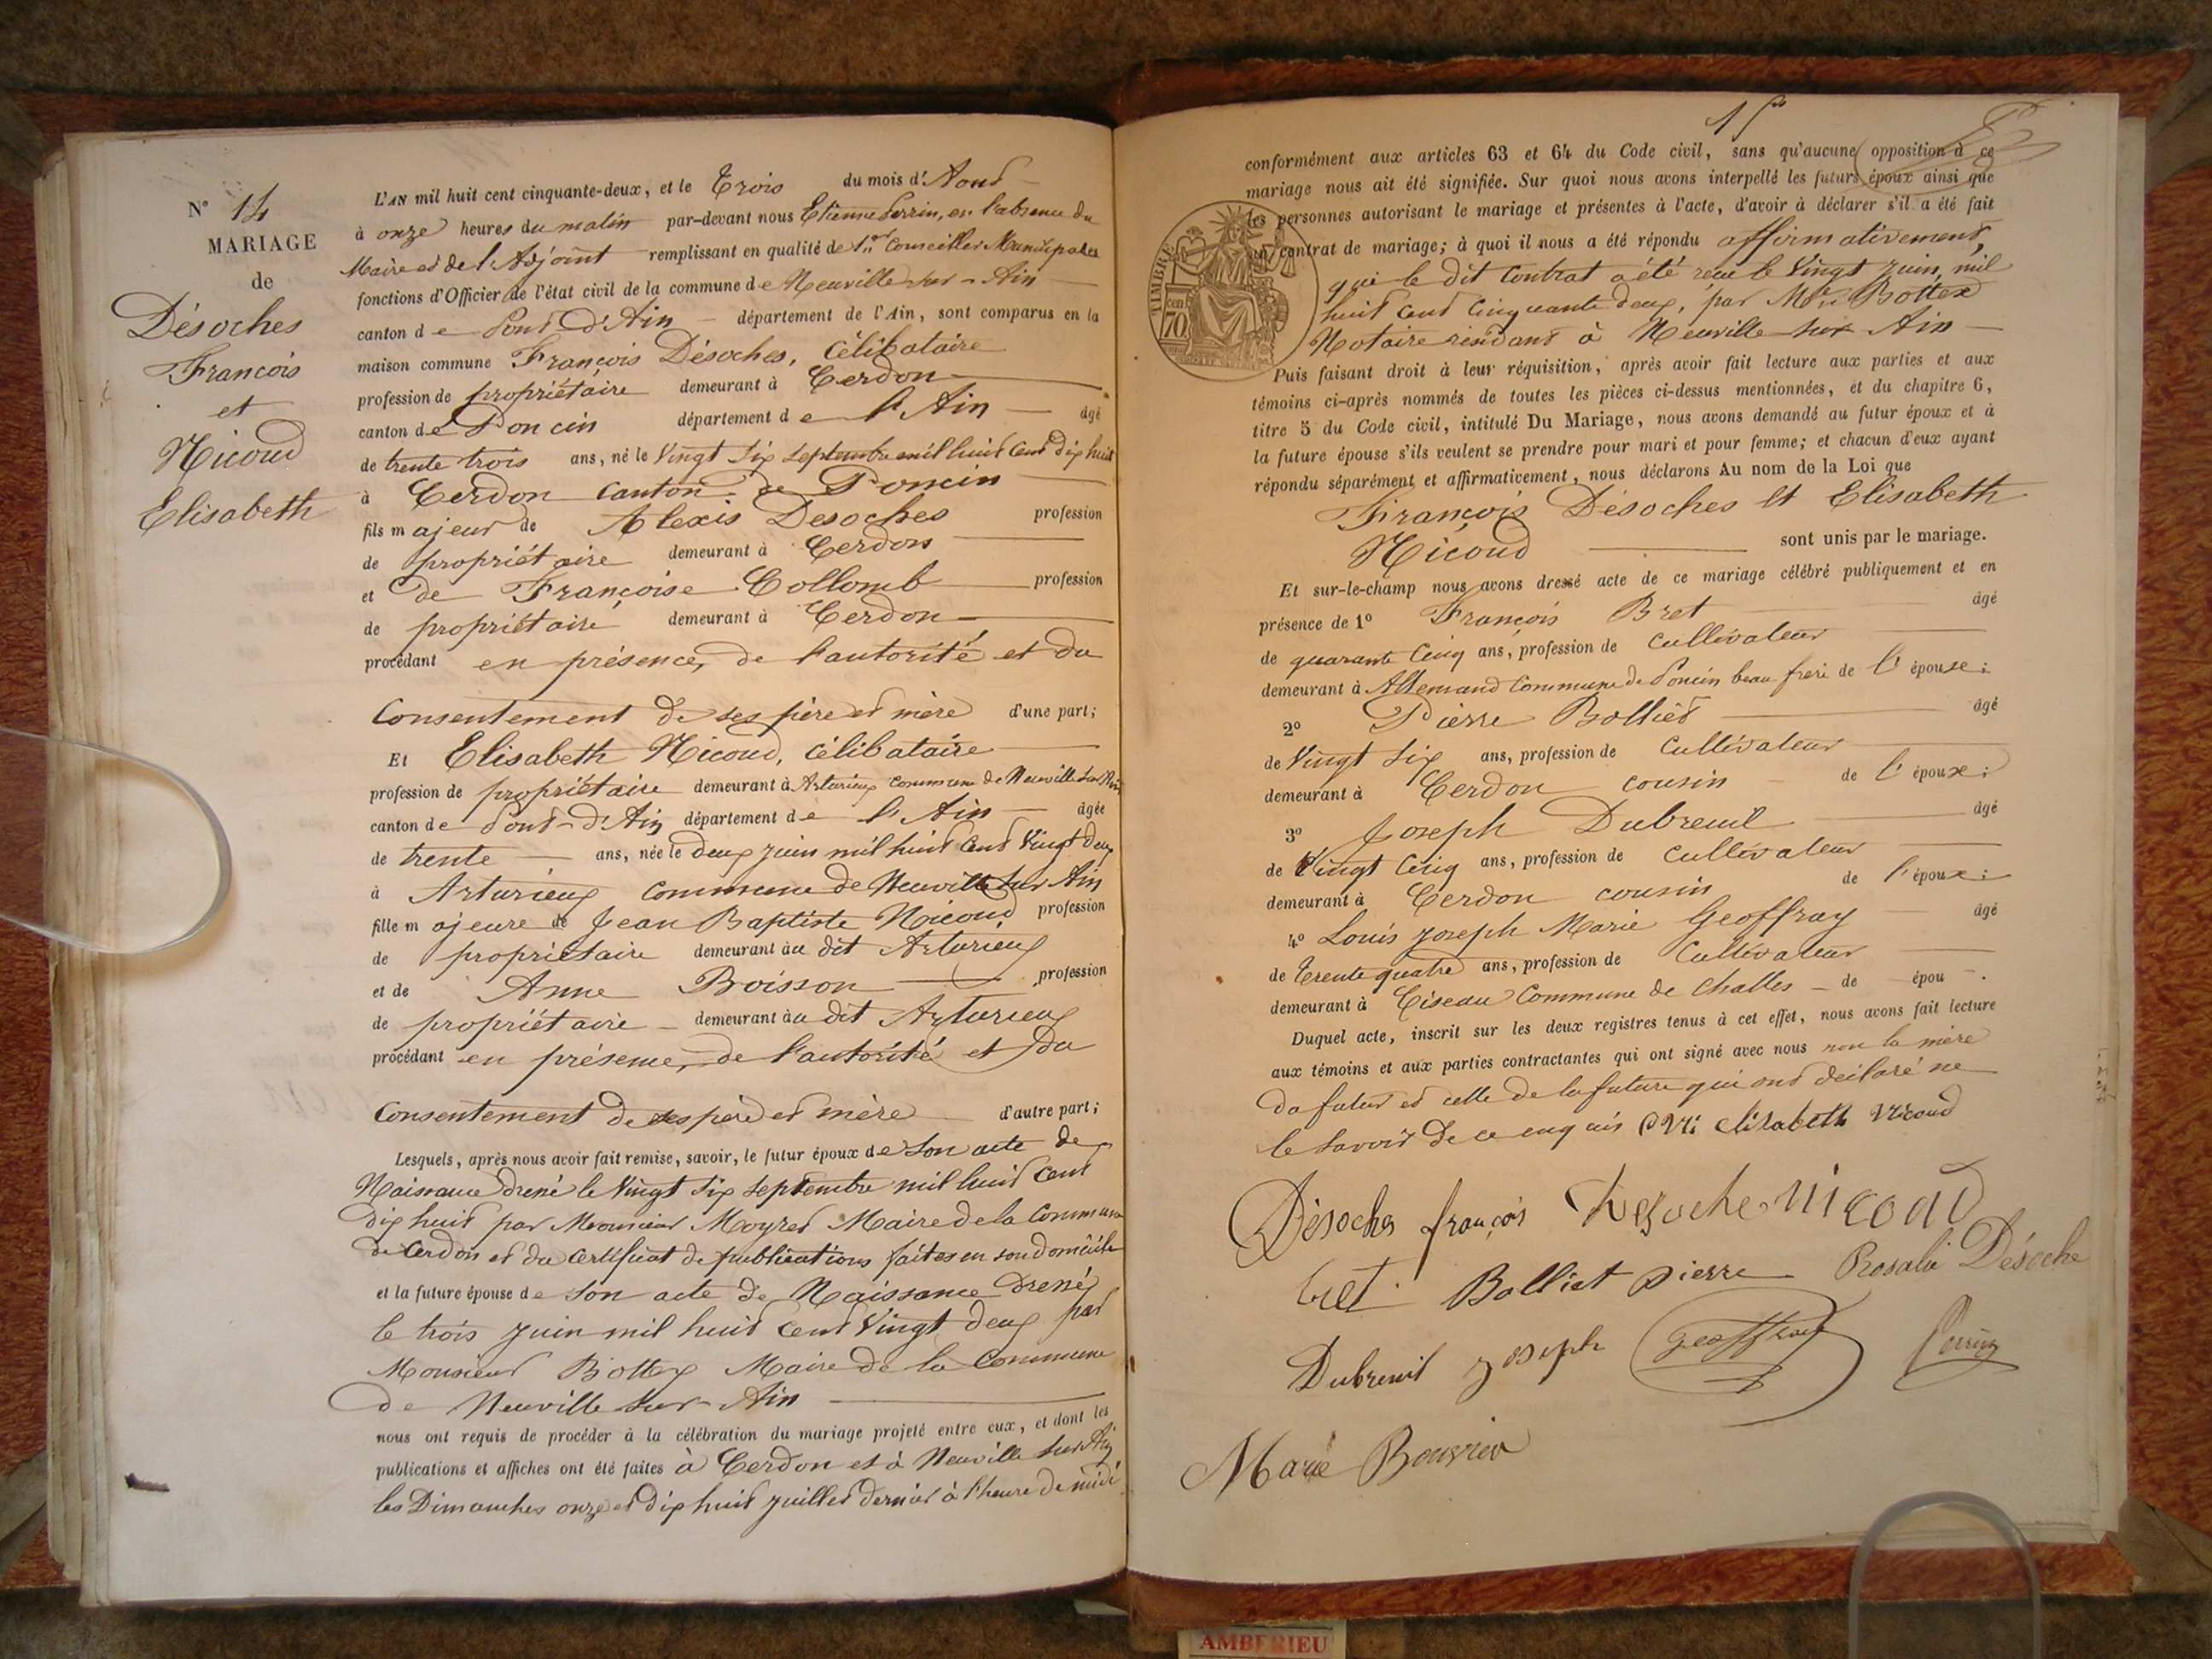 N° 14
MARIAGE
de
Désoches
François
et
Nicoud
Elisabeth
L'AN mil huit cent cinquante-deux, et le Trois du mois d'Aout
à onze heures du matin par-devant nous Etienne Perrin, en l'absence du
Maire et de l'Adjoint remplissant en qualité de 1er Conseiller Municipal les
fonctions d'Officier de l'état civil de la commune de Neuville sur-Ain
canton de Pont-d'Ain département de l'Ain, sont comparus en la
maison commune François Désoches, Célibataire
profession de propriétaire demeurant à Cerdon
canton de Poncin département de l'Ain âgé
de trente trois ans, né le Vingt six septembre mil huit cent dix huit
à Cerdon canton de Poncin
fils majeur de Alexis Desoches profession
de propriétaire demeurant à Cerdon
et de Françoise Collomb profession
de propriétaire demeurant à Cerdon
procédant en présence, de l'autorité et du
Consentement de ses père et mère d'une part;
Et Elisabeth Nicoud, célibataire
profession de propriétaire demeurant à Arturieux commune de Neuville sur Ain
canton de Pont-d'Ain département de l'Ain âgée
de trente ans, née le deux juin mil huit cent vingt deux
à Arturieux commune de Neuville sur Ain
fille majeure de Jean Baptiste Nicoud profession
de propriétaire demeurant au dit Arturieux
et de Anne Boisson profession
de propriétaire demeurant au dit Arturieux
procédant en présence, de l'autorité et du
Consentement de ses père et mère d'autre part;
Lesquels, après nous avoir fait remise, savoir, le futur époux de son acte de
Naissance dressé le Vingt six septembre mil huit cent
dix huit par Monsieur Moyret Maire de la Commune
de Cerdon et du certificat de publications faites en son domicile
et la future épouse de son acte de Naissance dressé
le trois juin mil huit cent vingt deux par
Monsieur Bottex Maire de la Commune
de Neuville sur-Ain
nous ont requis de procéder à la célébration du mariage projeté entre eux, et dont les
publications et affiches ont été faites à Cerdon et à Neuville sur Ain
les Dimanches onze et dix huit juillet dernier à l'heure de midi
15
conformément aux articles 63 et 64 du Code civil, sans qu'aucune opposition à ce
mariage nous ait été signifiée. Sur quoi nous avons interpellé les futurs époux ainsi que
les personnes autorisant le mariage et présentes à l'acte, d'avoir à déclarer s'il a été fait
un contrat de mariage; à quoi il nous a été répondu affirmativement,
que le dit contrat a été reçu le vingt juin mil
huit cent cinquante deux, par Me Bottex
Notaire résidant à Neuville sur Ain
TIMBRE
70 cen
Puis faisant droit à leur réquisition, après avoir fait lecture aux parties et aux
témoins ci-après nommés de toutes les pièces ci-dessus mentionnées, et du chapitre 6,
titre 5 du Code civil, intitulé Du Mariage, nous avons demandé au futur époux et à
la future épouse s'ils veulent se prendre pour mari et pour femme; et chacun d'eux ayant
répondu séparément et affirmativement, nous déclarons Au nom de la Loi que
François Désoches et Elisabeth
Nicoud sont unis par le mariage.
Et sur-le-champ nous avons dressé acte de ce mariage célébré publiquement et en
présence de 1° François Bret âgé
de quarante cinq ans, profession de cultivateur
demeurant à Allemand Commune de Poncin beau frère de l'épouse;
2° Pierre Bolliet âgé
de Vingt six ans, profession de Cultivateur
demeurant à Cerdon cousin de l'époux;
3° Joseph Dubreuil âgé
de Vingt cinq ans, profession de Cultivateur
demeurant à Cerdon cousin de l'époux;
4° Louis Joseph Marie Geoffray âgé
de trente quatre ans, profession de Cultivateur
demeurant à Ciseau Commune de Challes de épou .
Duquel acte, inscrit sur les deux registres tenus à cet effet, nous avons fait lecture
aux témoins et aux parties contractantes qui ont signé avec nous non la mère
du futur et celle de la future qui ont déclaré ne
le savoir de ce enquis elisabeth Nicoud
Désoches françois Desoche nicoud
bret Bolliet pierre Rosalie Désoche
Dubreuil joseph Geoffray Perrin
Marie Bouvier
AMBERIEU